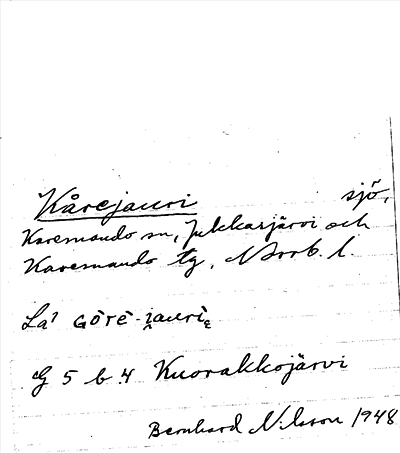 Kårejauri sjö,
Karesuando sn, Jukkasjärvi och
Karesuando tg, Norrb. l.
La' GÒRĒ-i̯auri
G 5 b 4 Kuorakkojärvi
Bernhard Nilsson 1948